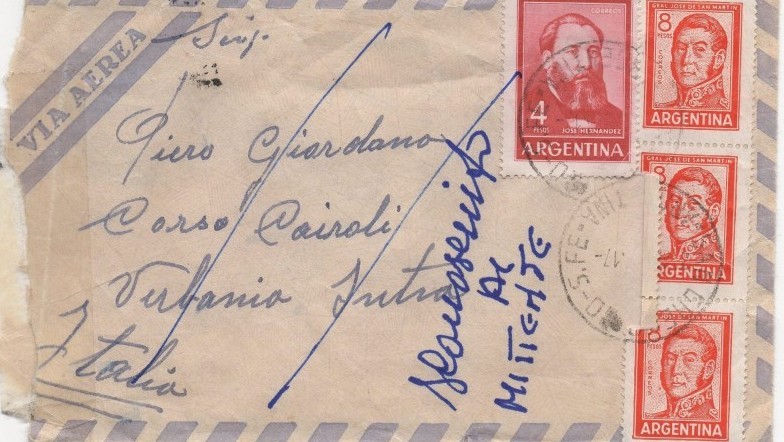 VIA AEREA
Sig.
Piero Giordano
Corso Cairoli
Verbania Intra
Italia
sconosciuto
AL
MITTENTE
CORREOS
4
PESOS
JOSE HERNANDEZ
ARGENTINA
GRAL JOSE DE SAN MARTIN
8
PESOS
CORREOS
ARGENTINA
GRAL JOSE DE SAN MARTIN
8
ARGENTINA
JOSE DE SAN MARTIN
8
PESOS
CORREOS
ARGENTINA
S.FE-